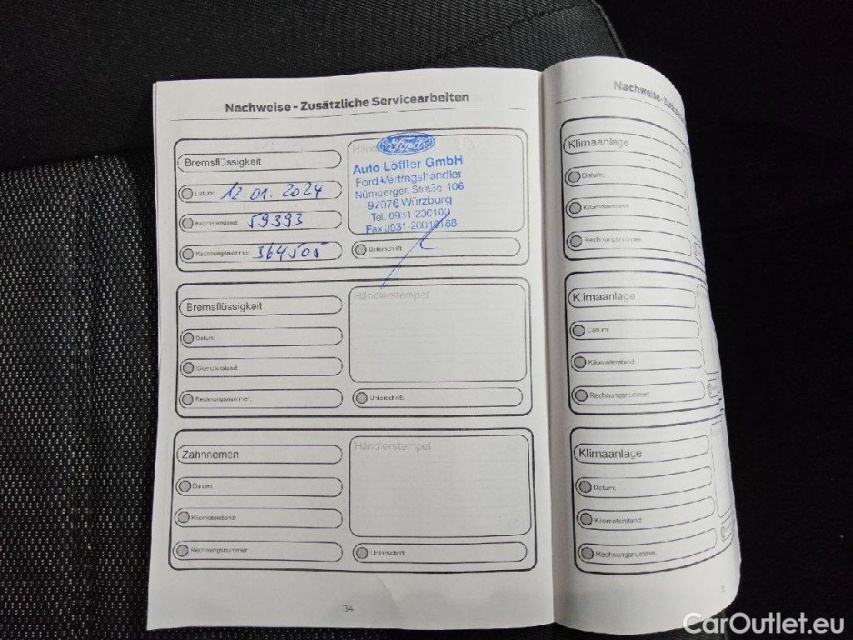 Nachweise - Zusätzliche Servicearbeiten
Bremsflüssigkeit
Datum: 12 01. 2024
Kilometerstand: 59393
Rechnungsnummer: 364505
Ford
Auto Löffler GmbH
Ford-Vertragshändler
Nürnberger Straße 106
97076 Würzburg
Tel. 0931 200100
Fax 0931-200
Unterschrift
Bremsflüssigkeit
Datum:
Kilometerstand:
Rechnungsnummer:
Händlerstempel
Unterschrift:
Zahnriemen
Datum:
Kilometerstand:
Rechnungsnummer:
Händlerstempel
Unterschrift:
34
Nachweise -
Klimaanlage
Datum:
Kilometerstand:
Rechnungsnummer:
Klimaanlage
Datum:
Kilometerstand:
Rechnungsnummer:
Klimaanlage
Datum:
Kilometerstand:
Rechnungsnummer:
CarOutlet.eu